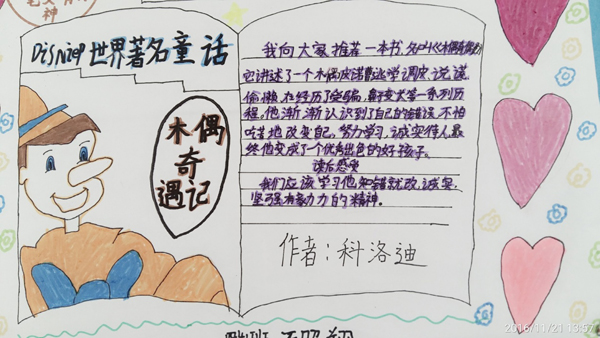 神
Disnep世界著名童话
木偶
奇
遇记
我向大家推荐一本书,名叫《木偶奇遇记》
它讲述了一个木偶皮诺曹逃学调皮、说谎
偷懒,在经历了受骗,
变大等一系列历
程。他渐渐认识到了自己的错误,不怕
吃苦地改变自己,努力学习,诚实待人,最
终他变成了一个优秀出色的好孩子。
读后感受
我们应该学习他知错就改,诚实,
坚强有毅力的精神。
作者:科洛迪
2016/11/21 13:57